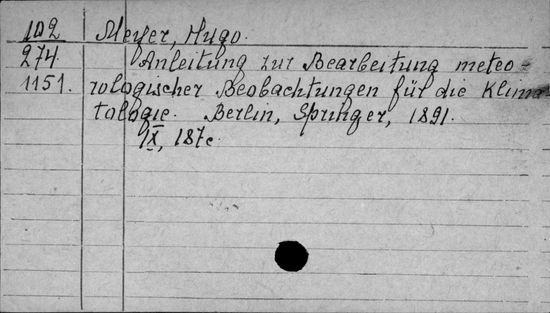 102 Meyer, Hugo.
274. Anleitung zur Bearbeitung meteo-
1151. rologischer Beobachtungen für die Klima-
tologie. Berlin, Springer, 1891.
IX, 187c.